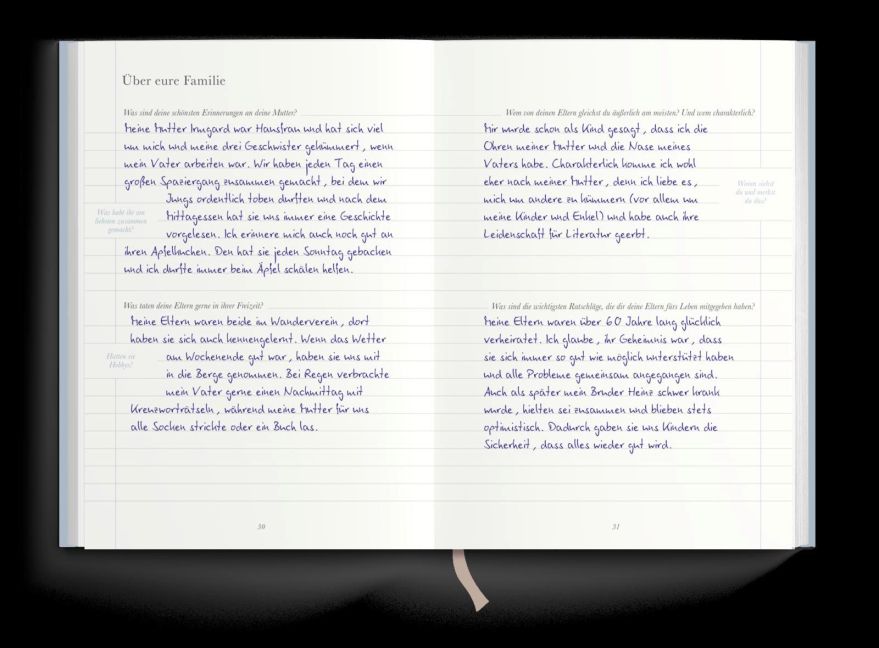 Über eure Familie
Was sind deine schönsten Erinnerungen an deine Mutter?
Meine Mutter Irmgard war Hausfrau und hat sich viel
um mich und meine drei Geschwister gekümmert, wenn
mein Vater arbeiten war. Wir haben jeden Tag einen
großen Spaziergang zusammen gemacht, bei dem wir
Jungs ordentlich toben durften und nach dem
Mittagessen hat sie uns immer eine Geschichte
vorgelesen. Ich erinnere mich auch noch gut an
ihren Apfelkuchen. Den hat sie jeden Sonntag gebacken
und ich durfte immer beim Äpfel schälen helfen.
Was habt ihr am
liebsten zusammen
gemacht?
Was taten deine Eltern gerne in ihrer Freizeit?
Meine Eltern waren beide im Wanderverein, dort
haben sie sich auch kennengelernt. Wenn das Wetter
am Wochenende gut war, haben sie uns mit
in die Berge genommen. Bei Regen verbrachte
mein Vater gerne einen Nachmittag mit
Kreuzworträtseln, während meine Mutter für uns
alle Socken strickte oder ein Buch las.
Hatten sie
Hobbys?
30
Wem von deinen Eltern gleichst du äußerlich am meisten? Und wem charakterlich?
Mir wurde schon als Kind gesagt, dass ich die
Ohren meiner Mutter und die Nase meines
Vaters habe. Charakterlich komme ich wohl
eher nach meiner Mutter, denn ich liebe es,
mich um andere zu kümmern (vor allem um
meine Kinder und Enkel) und habe auch ihre
Leidenschaft für Literatur geerbt.
Woran siehst
du und merkst
du das?
Was sind die wichtigsten Ratschläge, die dir deine Eltern fürs Leben mitgegeben haben?
Meine Eltern waren über 60 Jahre lang glücklich
verheiratet. Ich glaube, ihr Geheimnis war, dass
sie sich immer so gut wie möglich unterstützt haben
und alle Probleme gemeinsam angegangen sind.
Auch als später mein Bruder Heinz schwer krank
wurde, hielten sei zusammen und blieben stets
optimistisch. Dadurch gaben sie uns Kindern die
Sicherheit, dass alles wieder gut wird.
31